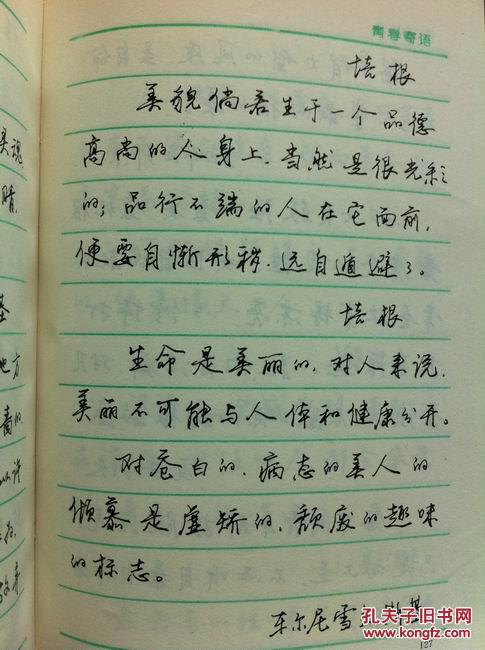 青春寄语
培根
美貌倘若生于一个品德
高尚的人身上,当然是很光彩
的;品行不端的人在它面前,
便要自惭形秽,远自遁避了。
培根
生命是美丽的,对人来说,
美丽不可能与人体和健康分开。
对苍白的,病态的美人的
倾慕是虚矫的,颓废的趣味
的标志。
车尔尼雪
127
孔夫子旧书网
KONGFZ.COM